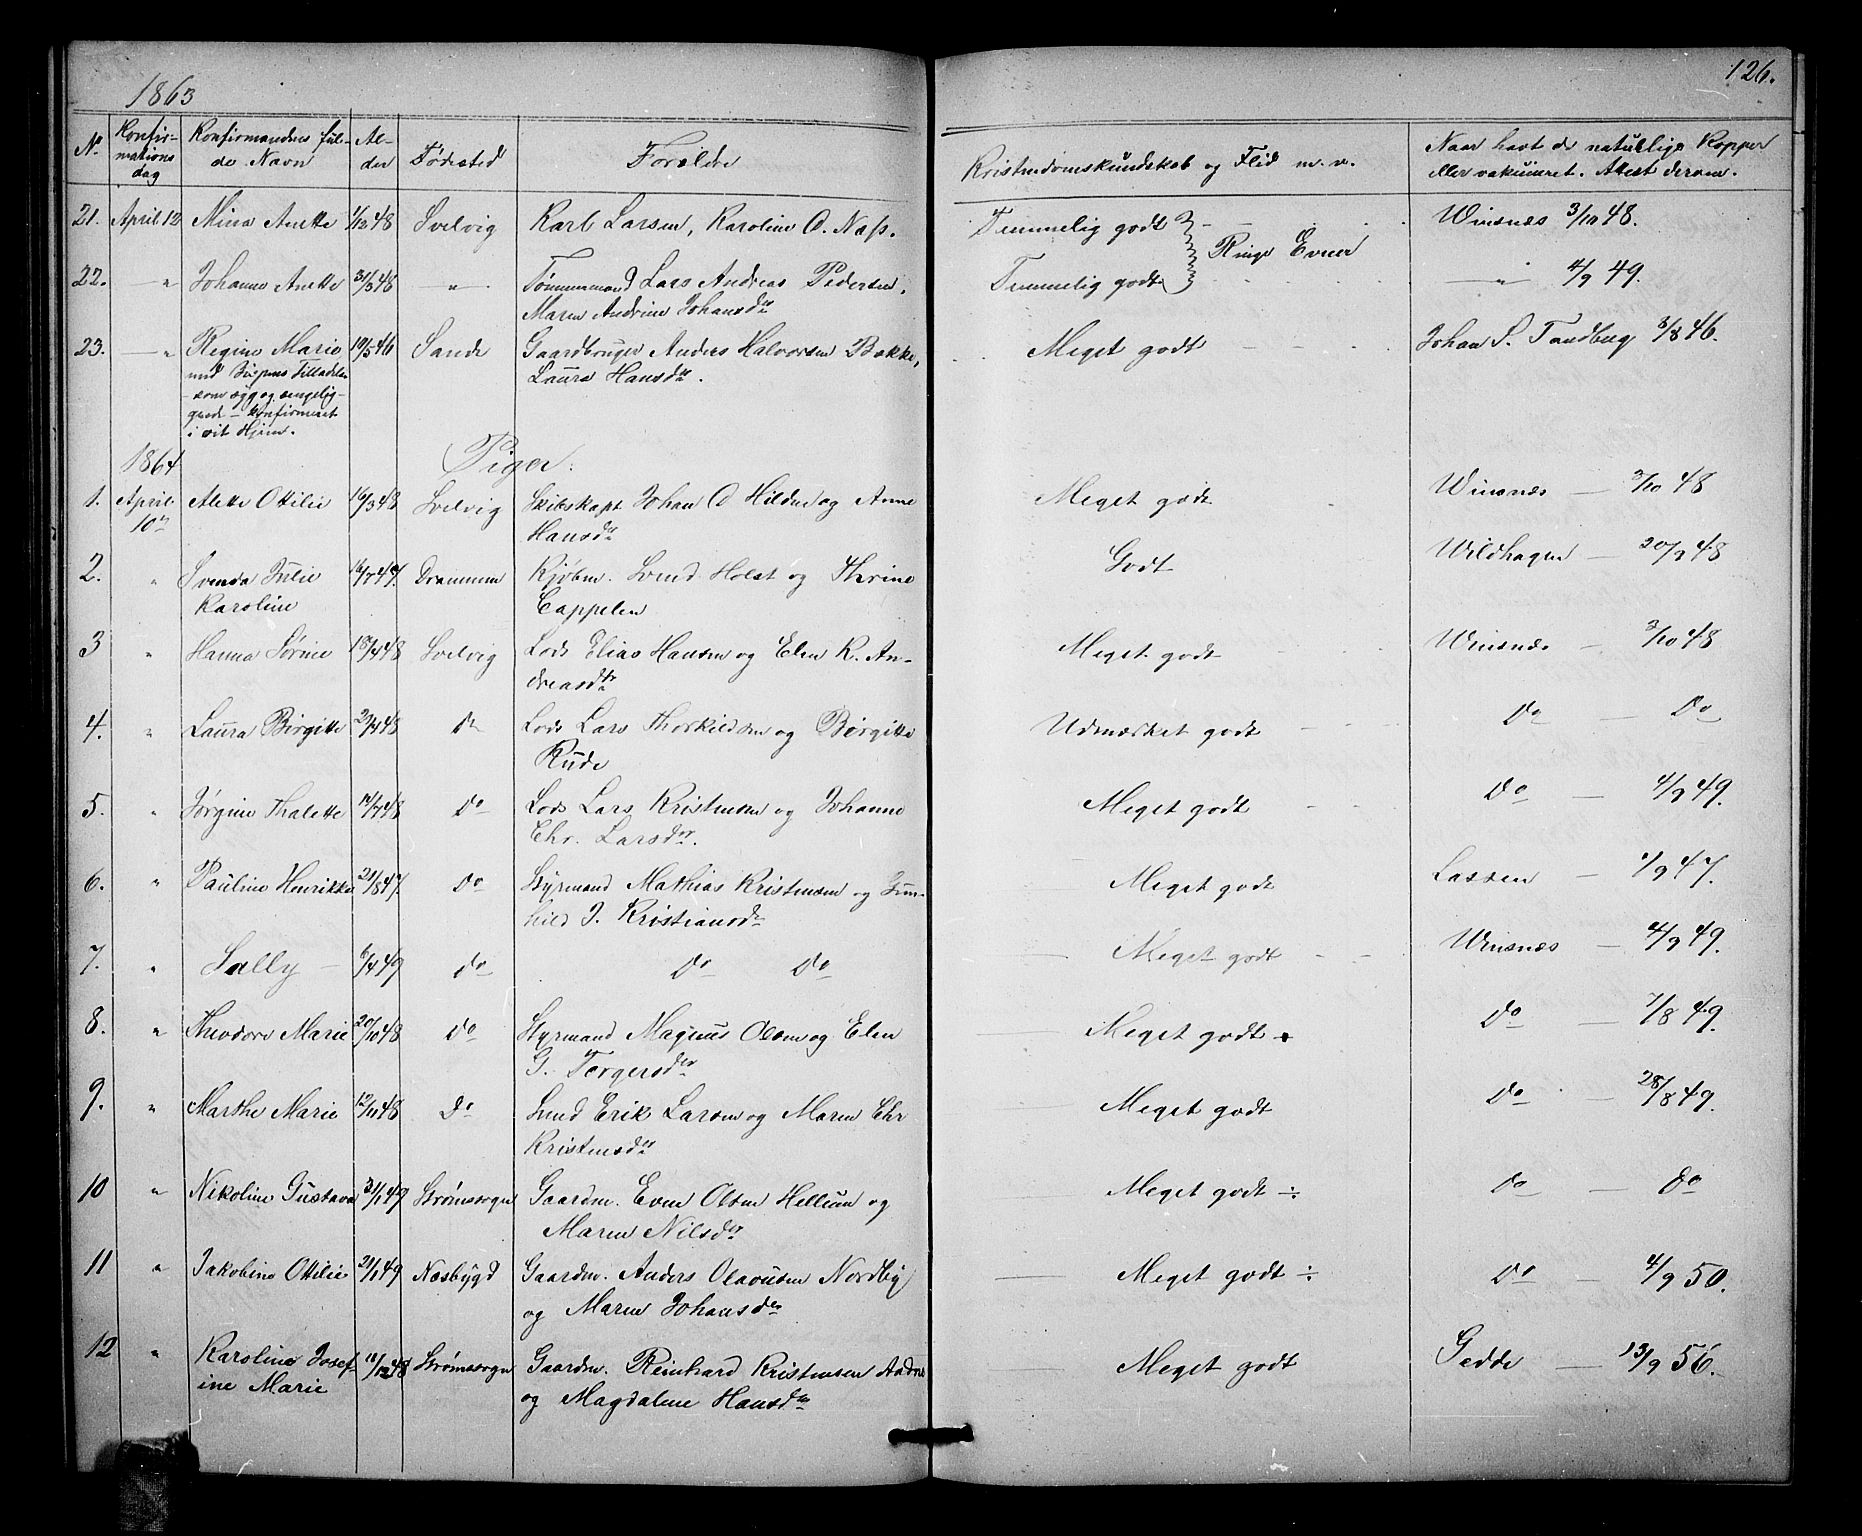 1863
126.
No. Konfirmations dag Konfirmandens fulde Navn Alder Fødested Forældre Kristendomskundskab og Flid m. v. Naar havt de naturlige Kopper eller vakcineret. Attest derom.
21. April 12 Mina Anette 1/12 48 Svelvig Karl Larsen, Karoline O. Næss. Temmelig godt Winsnes 3/10 48.
Ringe Evner
22. — " Johanne Anette 31/3 48 — " — Tømmermand Lars Andreas Pedersen, Temmelig godt — " — 4/9 49.
Maren Andrine Johansdr
23. — " Regine Marie 19/5 46 Sande Gaardbruger Anders Halvorsen Bakke, Meget godt Johan S. Tandberg 3/8 46.
med Bispens Tilladelse Laura Hansdr.
som syg og sengelig-
gende — konfirmeret
i sit Hjem.
1864 Piger.
1. April Alette Ottilie 16/3 48 Svelvig Skibskapt Johan O Hilden og Anne Meget godt Winsnes — 3/10 48
10de Hansdr
2. " Svenda Julie 16/7 47. Drammen Kjøbm. Svend Holst og Thrine Godt Wildhagen — 20/9 48
Karoline Cappelen
3 " Hanna Sørine 18/4 48 Svelvig Lods Elias Hansen og Elen K. An- Meget godt Winsnes — 3/10 48
dreasdtr
4. " Laura Birgitte 2/4 48 do Lods Lars Thorkildsen og Børgitte Udmærket godt do — do
Rude
5. " Jørgine Thalette 14/7 48 do Lods Lars Kristensen og Johanne Meget godt do — 4/9 49.
Chr. Larsdr.
6. " Pauline Henrikke 21/8 47. do Styrmand Mathias Kristensen og Gun- Meget godt Lassen — 1/9 47.
hild J. Kristiansdr
7. " Sally — 6/4 49 do do do — Meget godt Winsnes — 4/9 49.
8. " Theodora Marie 20/10 48 do Styrmand Magnus Olsen og Elen Meget godt do — 7/8 49.
G. Torgersdr
9. " Marthe Marie 12/11 48 do Smed Erik Larsen og Maren Chr Meget godt do — 28/8 49.
Kristensdr
10 " Nikoline Gustava 3/1 49 Strømssogn Gaardm. Even Olsen Hellum og Meget godt ÷ do — do
Maren Nilsdr
11 " Jakobine Ottilie 21/1 49 Næsbygd Gaardm. Anders Olavusen Nordby — Meget godt ÷ do — 4/9 50.
og Maren Johansdr
12 " Karoline Josef- 18/12 48 Strømssogn Gaardm. Reinhard Kristensen Meget godt Gedde — 13/9 56.
ine Marie og Magdalene Hansdr